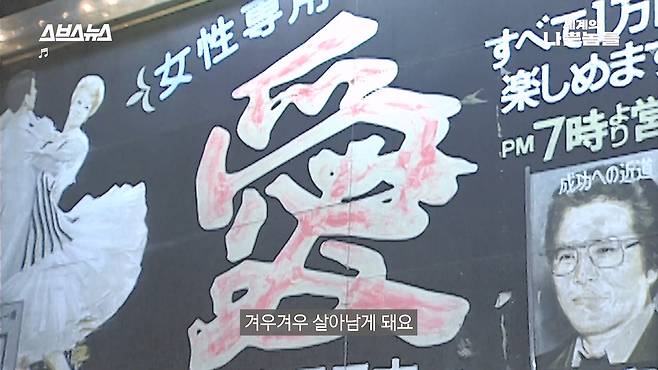 스브스뉴스
세계의
나쁜놈들
女性専用
愛
すべて1万円
楽しめます
PM7時より営
成功への近道
겨우겨우 살아남게 돼요